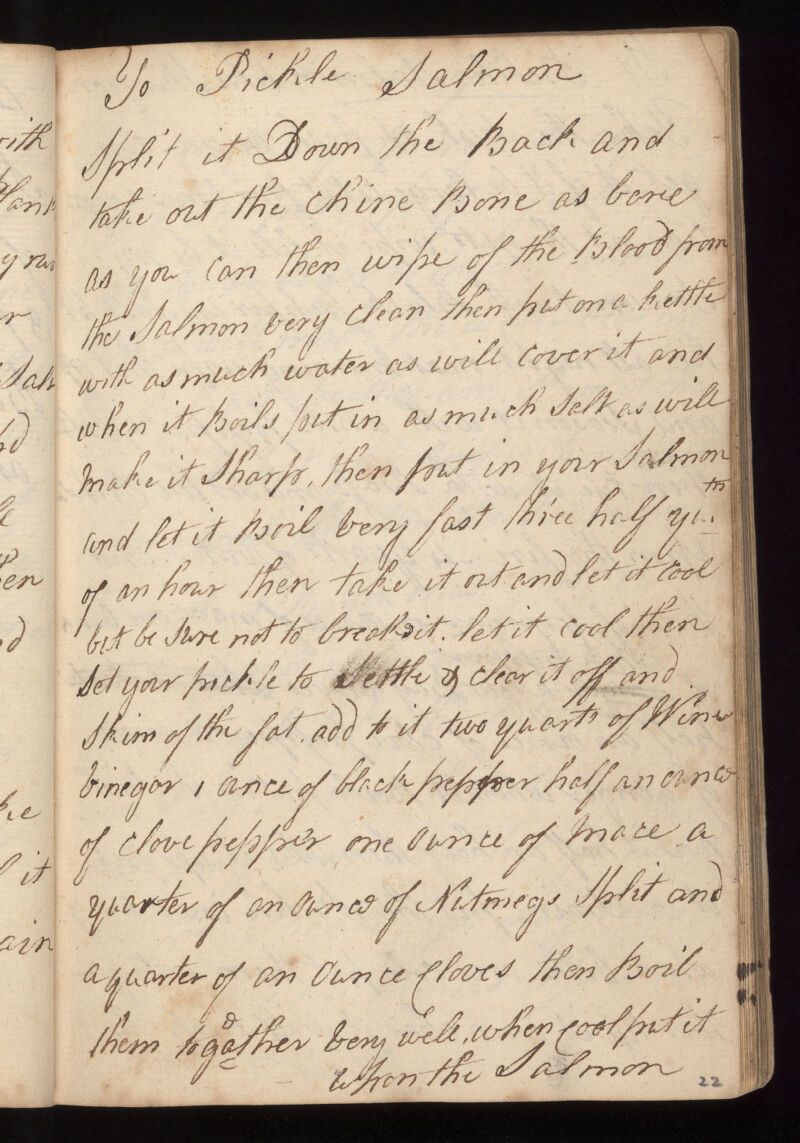 To Pickle Salmon
Split it Down the Back and
take out the Chine Bone as bare
as you can then wipe of the Blood from
the Salmon very clean then put on a kettle
with as much water as will cover it and
when it Boils put in as much Salt as will
make it Sharp, then put in your Salmon
and let it Boil very fast three half qu.
of an hour then take it out and let it cool
but be sure not to break it. let it cool then
Set your pickle to Settle & clear it off and
Skim of the fat. add to it two quarts of Wine
vinegar 1 ounce of black pepper half an ounce
of clove pepper one ounce of mace a
quarter of an ounce of Nutmegs Split and
a quarter of an ounce Cloves then Boil
them togather very well, when cool put it
upon the Salmon
22
with
y
r
Salt
en
ke
it
ain